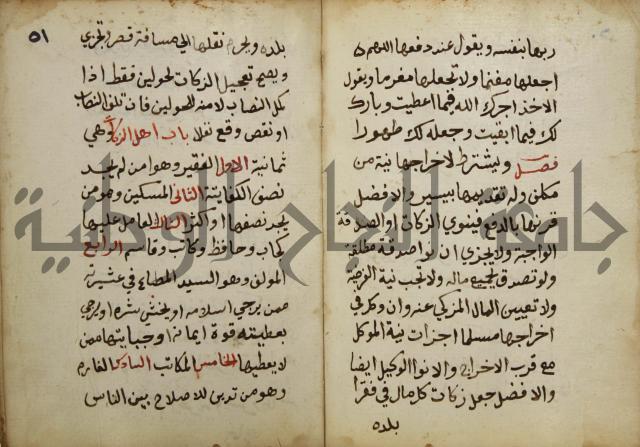 ربها بنفسه ويقول عند دفعها اللهم
اجعلها مغنما ولا تجعلها مغرما ويقول
الاخذ اجرك الله فيما اعطيت وبارك
لك فيما ابقيت وجعله لك طهورا
فصل ويشترط لاخراجها نية من
مكلف وله تقديمها بيسير والافضل
قرنها بالدفع فينوي الزكات او الصدقة
الواجبة ولا يجزي ان نوا صدقة مطلقة
ولو تصدق بجميع ماله ولا تجب نية الفرضية
ولا تعيين المال المزكي عنه وان وكل في
اخراجها مسلما اجزات نية الموكل
مع قرب الاخراج والا نوا الوكيل ايضا
والافضل جعل زكات كل مال في فقرا
بلده
٥١
بلده ويحرم نقلها الي مسافة قصر وتجزي
ويصح تعجيل الزكات لحولين فقط اذا
كمل النصاب لا منه للحولين فان تلف النصاب
او نقص وقع نفلا باب اهل الزكاة وهي
ثمانية الاول الفقير وهو من لم يجد
نصف الكفاية الثاني المسكين وهو من
يجد نصفها او اكثر الثالث العامل عليها
كجاب وحافظ وكاتب وقاسم الرابع
المولف وهو السيد المطاع في عشيرته
ممن يرجي اسلامه او يخشى شره او يرجي
بعطيته قوة ايمانه او جبايتها ممن
لا يعطيها الخامس المكاتب السادس الغارم
وهو من تدين للاصلاح بين الناس
جامعة النجاح الوطنية